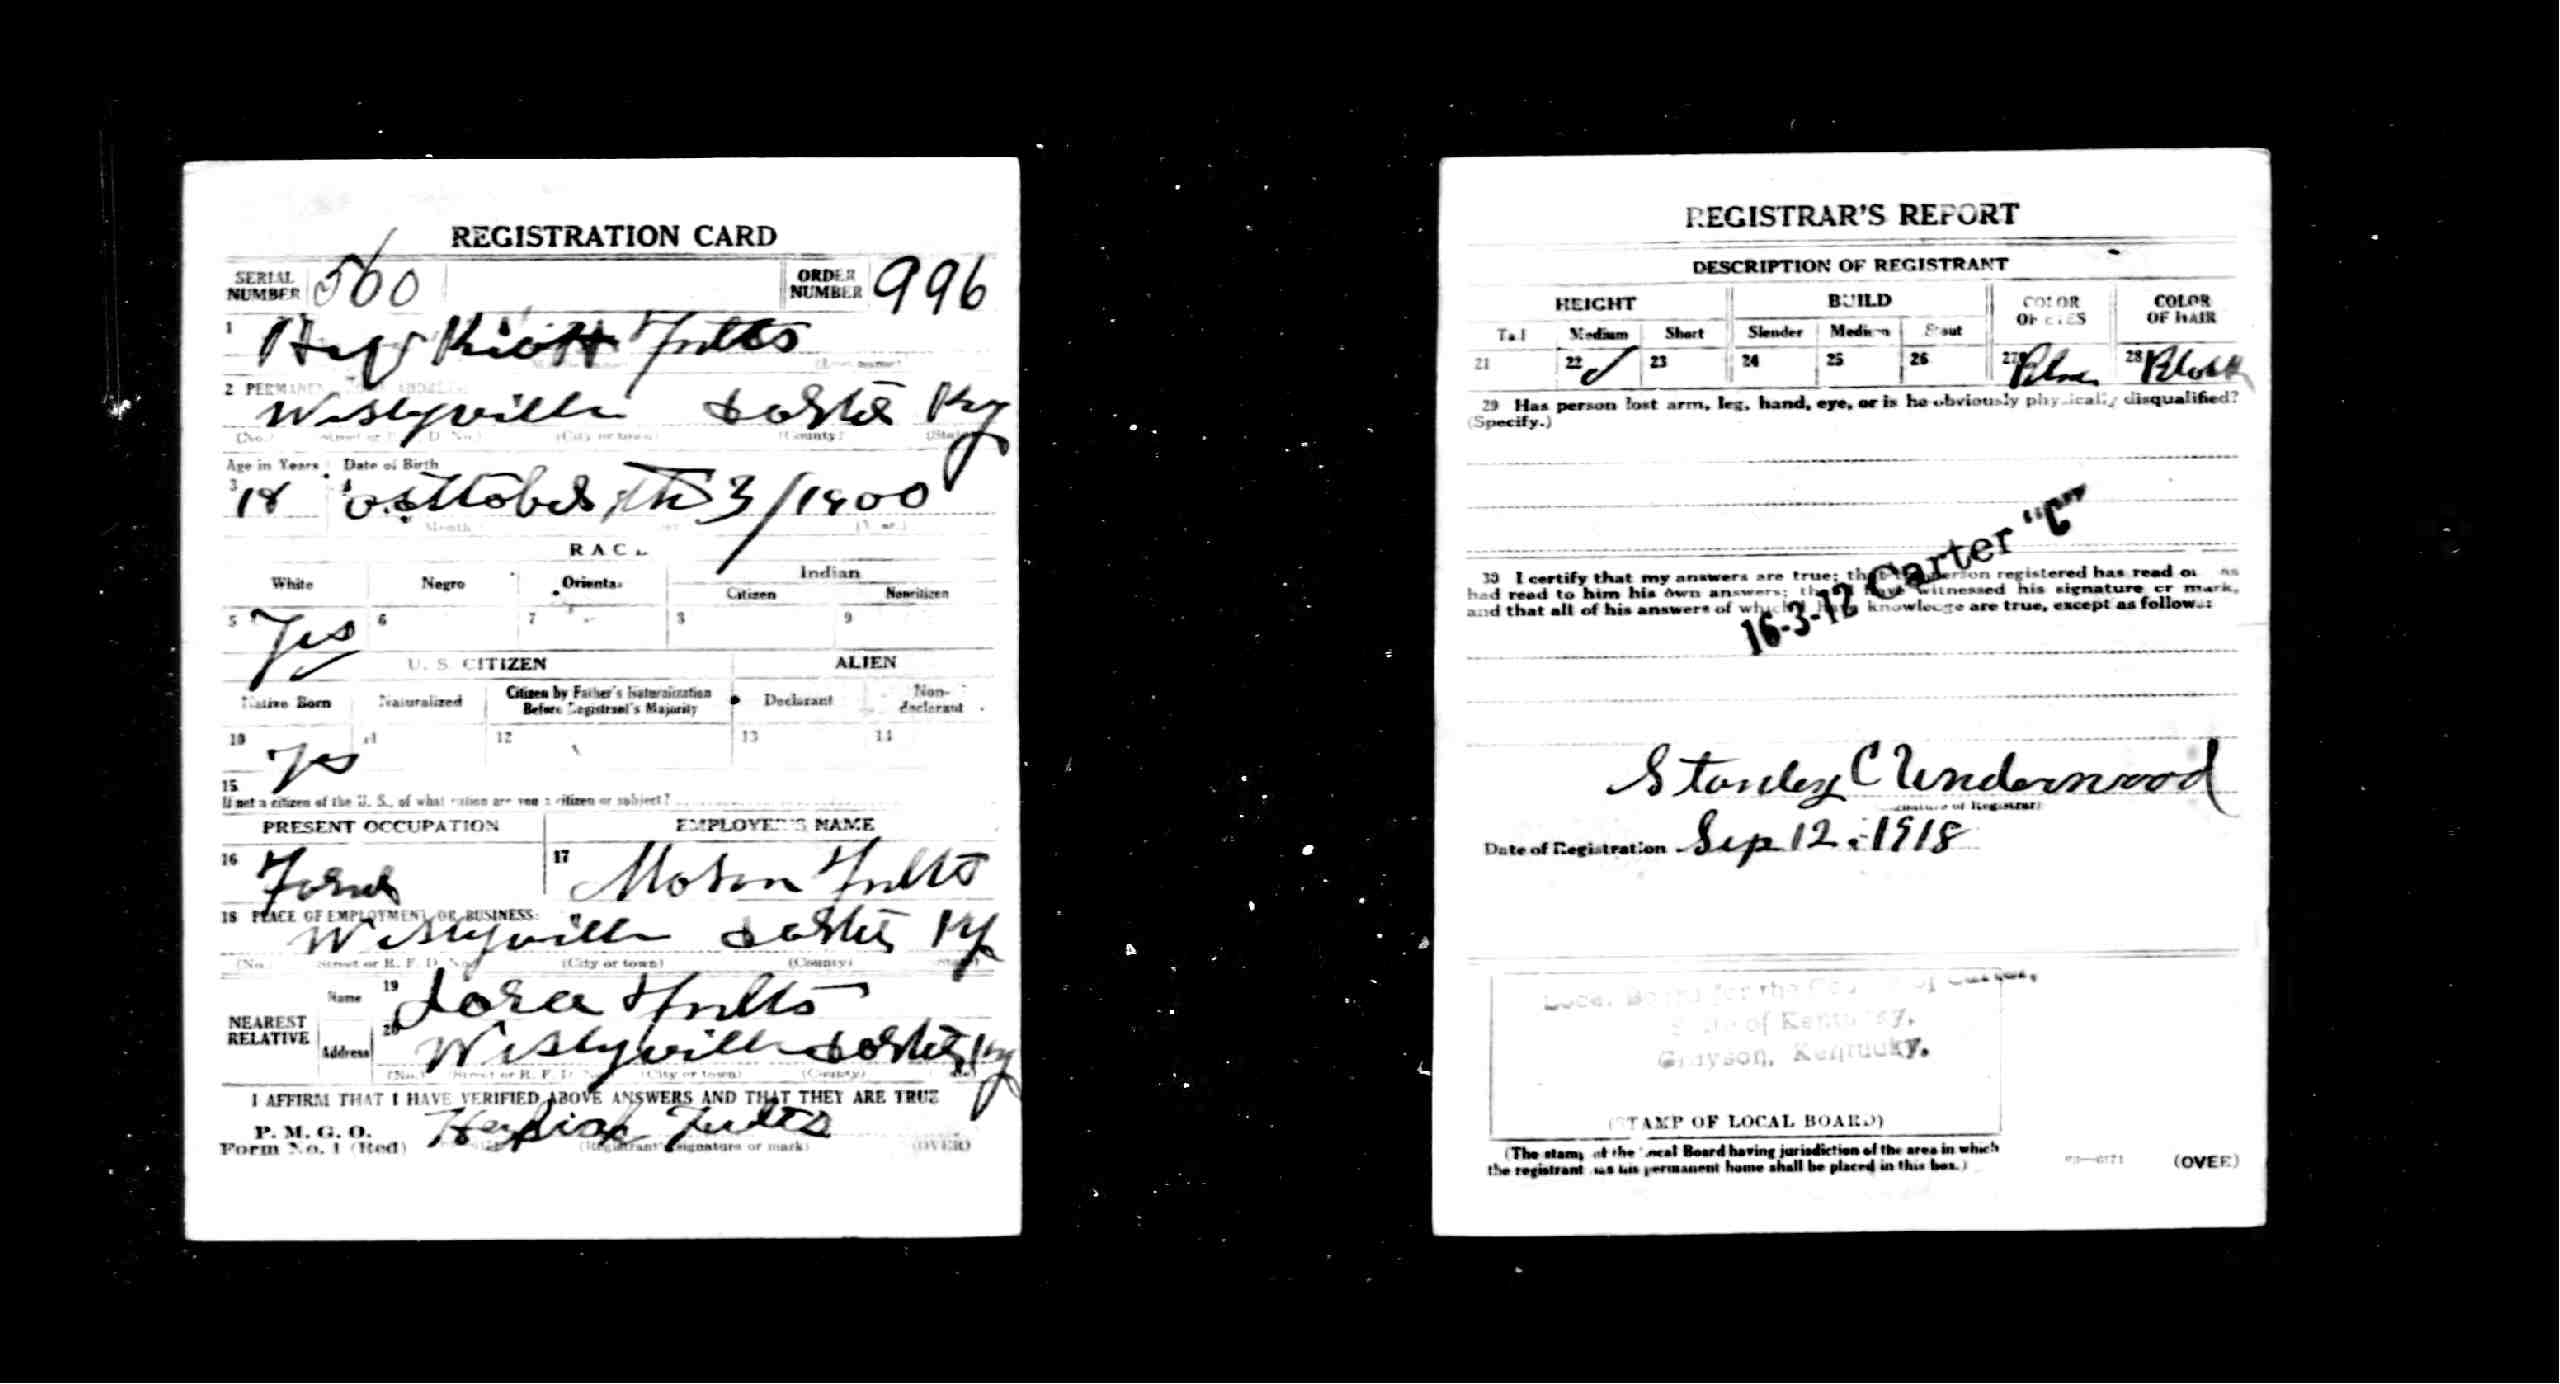 REGISTRATION CARD
SERIAL NUMBER 560 ORDER NUMBER 996
1 Fults
2 PERMANENT HOME ADDRESS
Weslyville Carter Ky
(No.) (Street or R. F. D. No.) (City or town) (County) (State)
Age in Years Date of Birth
3 18 4 th 3/1900
(Month) (Year)
RACE
White Negro Oriental Indian
Citizen Noncitizen
5 Yes 6 7 8 9
U. S. CITIZEN ALIEN
Native Born Naturalized Citizen by Father's Naturalization Before Registrant's Majority Declarant Non-declarant
10 Yes 11 12 13 14
15
If not a citizen of the U. S., of what nation are you a citizen or subject?
PRESENT OCCUPATION EMPLOYER'S NAME
16 17 Fults
18 PLACE OF EMPLOYMENT OR BUSINESS:
Weslyville Carter Ky
(No.) (Street or R. F. D. No.) (City or town) (County) (State)
NEAREST RELATIVE
Name 19 Fults
Address 20 Weslyville Carter Ky
(No.) (Street or R. F. D. No.) (City or town) (County) (State)
I AFFIRM THAT I HAVE VERIFIED ABOVE ANSWERS AND THAT THEY ARE TRUE
P. M. G. O.
Form No. 1 (Red) Fults
(Registrant's signature or mark) (OVER)
REGISTRAR'S REPORT
DESCRIPTION OF REGISTRANT
HEIGHT BUILD COLOR OF EYES COLOR OF HAIR
Tall Medium Short Slender Medium Stout
21 22 ✓ 23 24 25 26 27 28 Black
29 Has person lost arm, leg, hand, eye, or is he obviously physically disqualified?
(Specify.)
30 I certify that my answers are true; that the person registered has read or has
had read to him his own answers; that I have witnessed his signature or mark,
and that all of his answers of which I have knowledge are true, except as follows:
16-3-12 Carter "C"
Stanley C Underwood
(Signature of Registrar)
Date of Registration Sep 12, 1918
Local Board for the County of Carter,
State of Kentucky,
Grayson, Kentucky.
(STAMP OF LOCAL BOARD)
(The stamp of the Local Board having jurisdiction of the area in which
the registrant has his permanent home shall be placed in this box.)
(OVER)